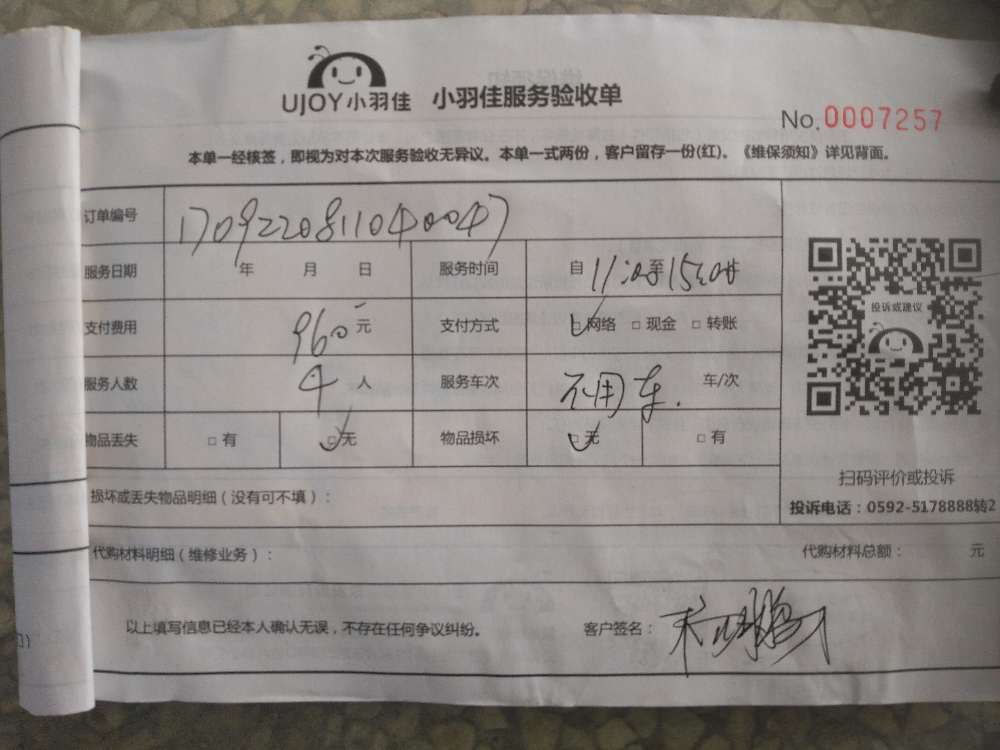 UJOY小羽佳 小羽佳服务验收单
No.0007257
本单一经核签，即视为对本次服务验收无异议。本单一式两份，客户留存一份(红)。《维保须知》详见背面。
订单编号 170922081104004​7
服务日期 年 月 日 服务时间 自 11:00至15:00时
支付费用 960元 支付方式 网络 □ 现金 □ 转账
服务人数 4 人 服务车次 不用车. 车/次
物品丢失 □ 有 □无 物品损坏 □无 □ 有
投诉或建议
扫码评价或投诉
投诉电话：0592-5178888转2
损坏或丢失物品明细（没有可不填）：
代购材料明细（维修业务）： 代购材料总额： 元
以上填写信息已经本人确认无误，不存在任何争议纠纷。 客户签名：